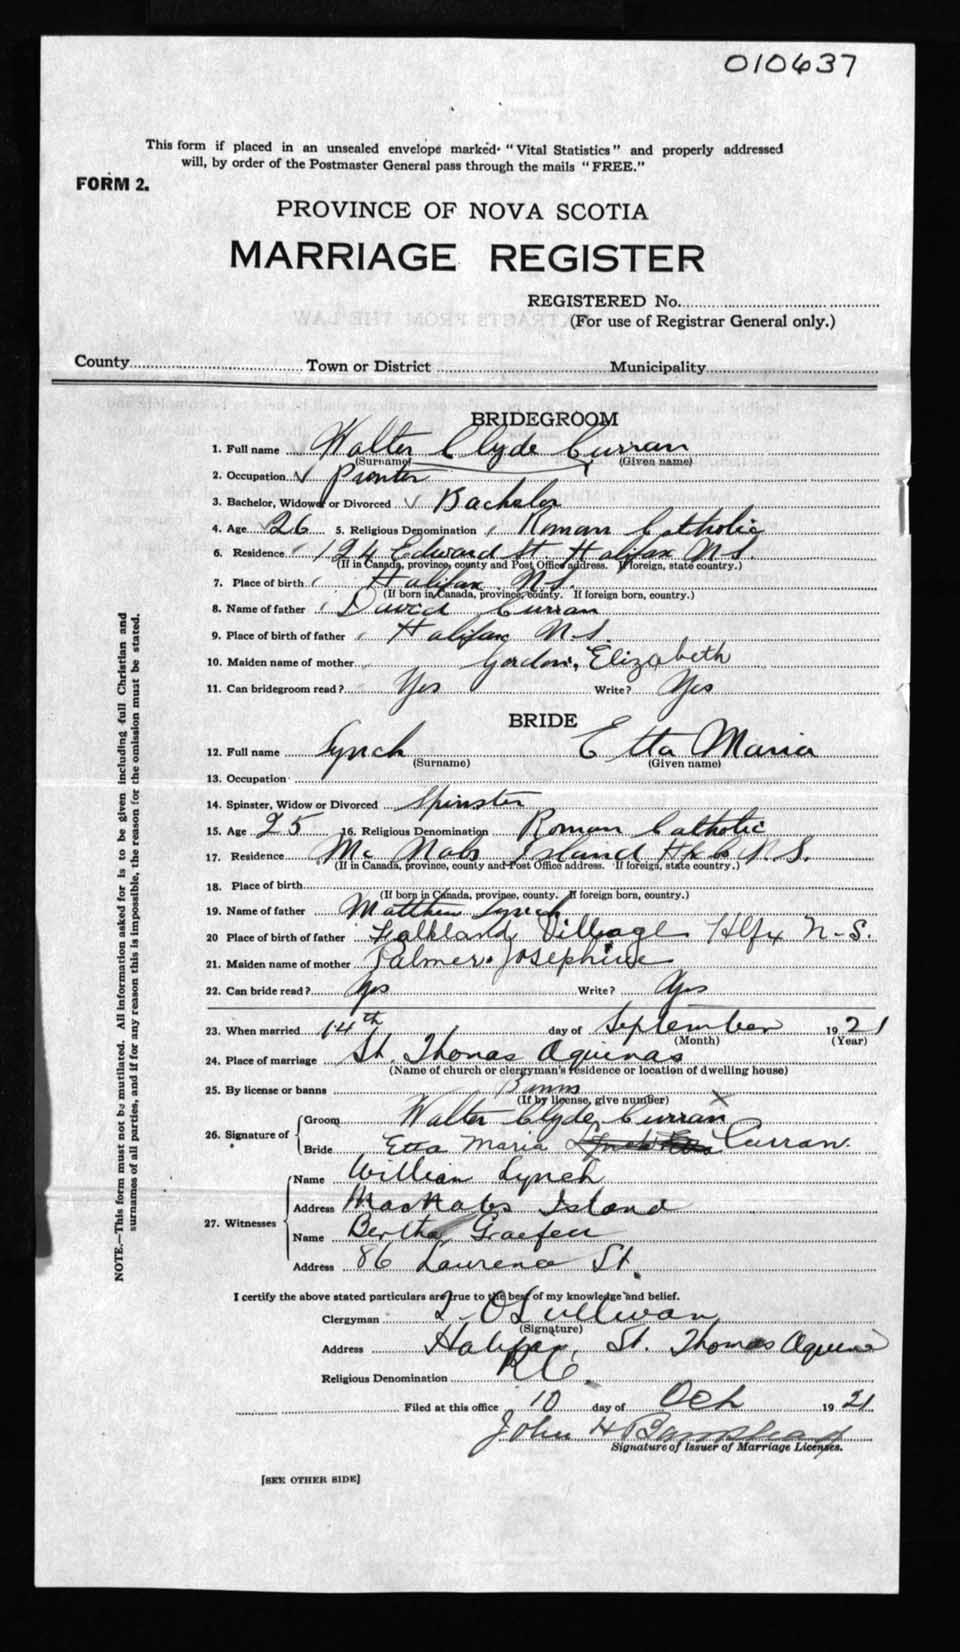 010637
This form if placed in an unsealed envelope marked "Vital Statistics" and properly addressed
will, by order of the Postmaster General pass through the mails "FREE."
FORM 2.
PROVINCE OF NOVA SCOTIA
MARRIAGE REGISTER
REGISTERED No.
(For use of Registrar General only.)
County Town or District Municipality
BRIDEGROOM
1. Full name Walter Clyde Curran
(Surname) (Given name)
2. Occupation
3. Bachelor, Widower or Divorced Bachelor
4. Age 26 5. Religious Denomination Roman Catholic
6. Residence 124 Edward St Halifax N.S.
(If in Canada, province, county and Post Office address. If foreign, state country.)
7. Place of birth Halifax N.S.
(If born in Canada, province, county. If foreign born, country.)
8. Name of father David Curran
9. Place of birth of father Halifax N.S.
10. Maiden name of mother Gordon, Elizabeth
11. Can bridegroom read? Yes Write? Yes
BRIDE
12. Full name Lynch Etta Maria
(Surname) (Given name)
13. Occupation
14. Spinster, Widow or Divorced Spinster
15. Age 25 16. Religious Denomination Roman Catholic
17. Residence Mc Nabs Island Hx Co N.S.
(If in Canada, province, county and Post Office address. If foreign, state country.)
18. Place of birth
(If born in Canada, province, county. If foreign born, country.)
19. Name of father Matthew Lynch
20 Place of birth of father Falkland Village Hlfx N-S.
21. Maiden name of mother Palmer Josephine
22. Can bride read? Yes Write? Yes
23. When married 14th day of September 1921
(Month) (Year)
24. Place of marriage St. Thomas Aquinas
(Name of church or clergyman's residence or location of dwelling house)
25. By license or banns Banns
(If by license, give number)
26. Signature of Groom Walter Clyde Curran X
Bride Etta Maria Curran.
27. Witnesses Name William Lynch
Address MacNabs Island
Name Bertha
Address 86 Laurence St.
I certify the above stated particulars are true to the best of my knowledge and belief.
Clergyman O'Sullivan
(Signature)
Address Halifax, St. Thomas Aquinas
Religious Denomination R.C.
Filed at this office 10 day of Oct 1921
John H Barnstead
Signature of Issuer of Marriage Licenses.
[SEE OTHER SIDE]
NOTE.—This form must not be mutilated. All information asked for is to be given including full Christian and
surnames of all parties, and if for any reason this is impossible, the reason for the omission must be stated.